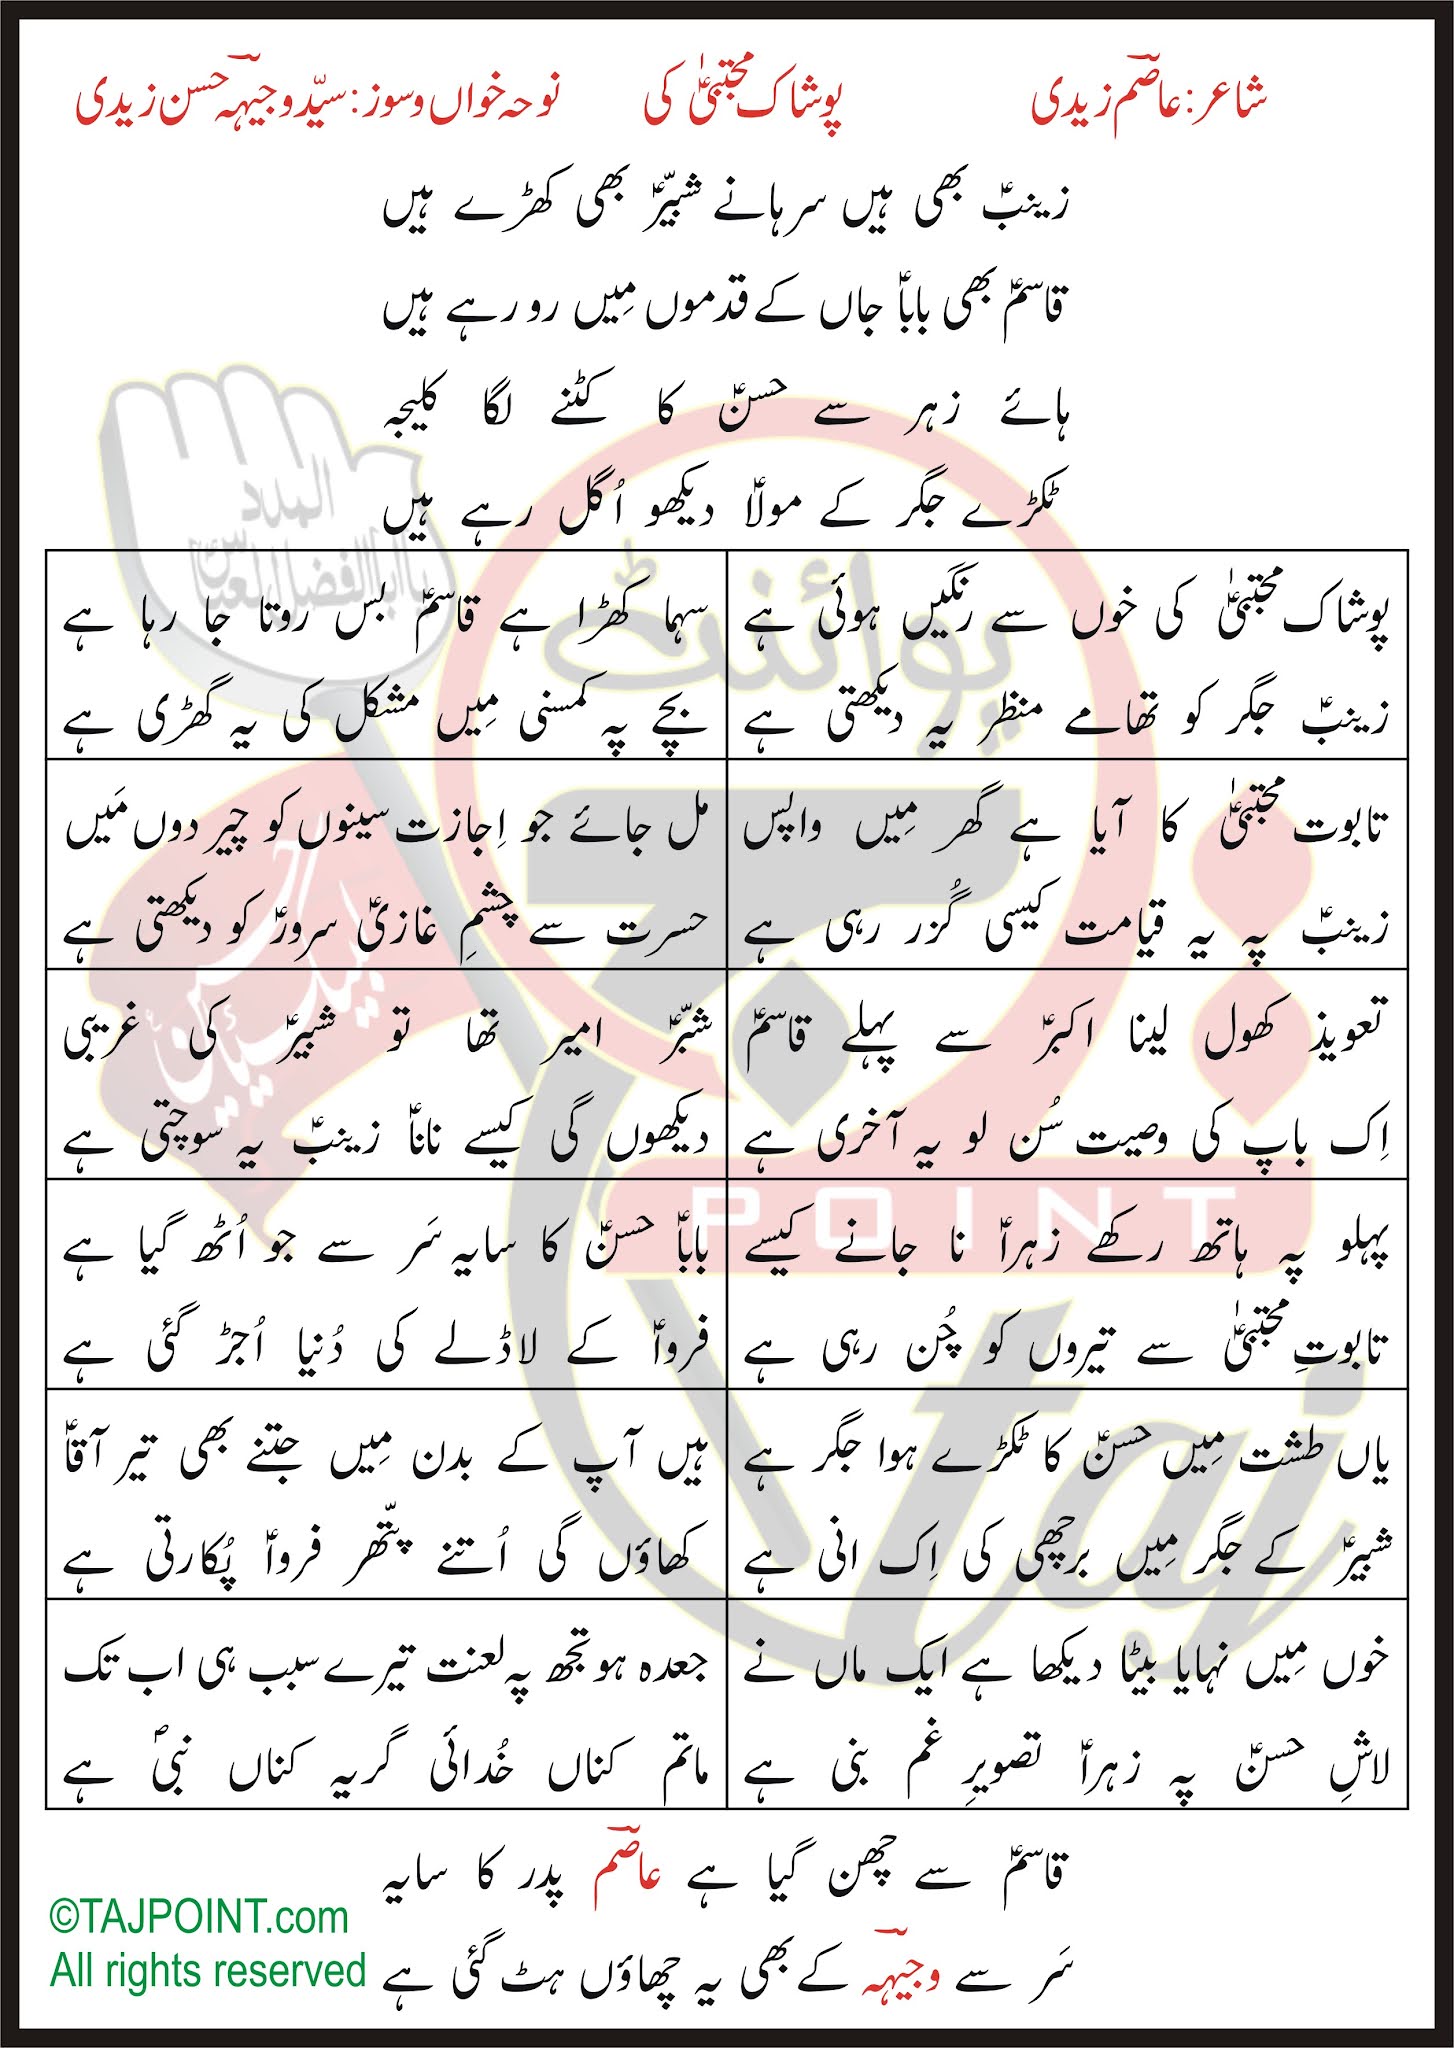 شاعر: عاصمؔ زیدی پوشاک مجتبیٰؑ کی نوحہ خواں و سوز: سیّد وجیہہؔ حسن زیدی
زینبؑ بھی ہیں سرہانے شبیّرؑ بھی کھڑے ہیں
قاسمؑ بھی باباؑ جاں کے قدموں مِیں رو رہے ہیں
ہائے زہر سے حسنؑ کا کٹنے لگا کلیجہ
ٹکڑے جگر کے مولاؑ دیکھو اُگل رہے ہیں
پوشاک مجتبیٰؑ کی خوں سے رنگیں ہوئی ہے
زینبؑ جگر کو تھامے منظر یہ دیکھتی ہے
سہما کھڑا ہے قاسمؑ بس روتا جا رہا ہے
بچے پہ کمسنی مِیں مشکل کی یہ گھڑی ہے
تابوت مجتبیٰؑ کا آیا ہے گھر مِیں واپس
زینبؑ پہ یہ قیامت کیسی گُزر رہی ہے
مل جائے جو اِجازت سینوں کو چیر دوں مَیں
حسرت سے چشمِ غازیؑ سرورؑ کو دیکھتی ہے
تعویذ کھول لینا اکبرؑ سے پہلے قاسمؑ
اِک باپ کی وصیت سُن لو یہ آخری ہے
شبّرؑ امیر تھا تو شبیرؑ کی غریبی
دیکھوں گی کیسے ناناؑ زینبؑ یہ سوچتی ہے
پہلو پہ ہاتھ رکھے زہراؑ نا جانے کیسے
تابوتِ مجتبیٰؑ سے تیروں کو چُن رہی ہے
باباؑ حسنؑ کا سایہ سَر سے جو اُٹھ گیا ہے
فرواؑ کے لاڈلے کی دُنیا اُجڑ گئی ہے
یاں طشت مِیں حسنؑ کا ٹکڑے ہوا جگر ہے
شبیرؑ کے جگر مِیں برچھی کی اِک انی ہے
ہیں آپ کے بدن مِیں جتنے بھی تیر آقاؑ
کھاؤں گی اُتنے پتّھر فرواؑ پُکارتی ہے
خوں مِیں نہایا بیٹا دیکھا ہے ایک ماں نے
لاشِ حسنؑ پہ زہراؑ تصویرِ غم بنی ہے
جعدہ ہو تجھ پہ لعنت تیرے سبب ہی اب تک
ماتم کناں خُدائی گریہ کناں نبیؐ ہے
قاسمؑ سے چھن گیا ہے عاصمؔ پدر کا سایہ
سَر سے وجیہہؔ کے بھی یہ چھاؤں ہٹ گئی ہے
©TAJPOINT.com
All rights reserved
المدد
یا اباالفضل العباسؑ
پوائنٹ
POINT
taj